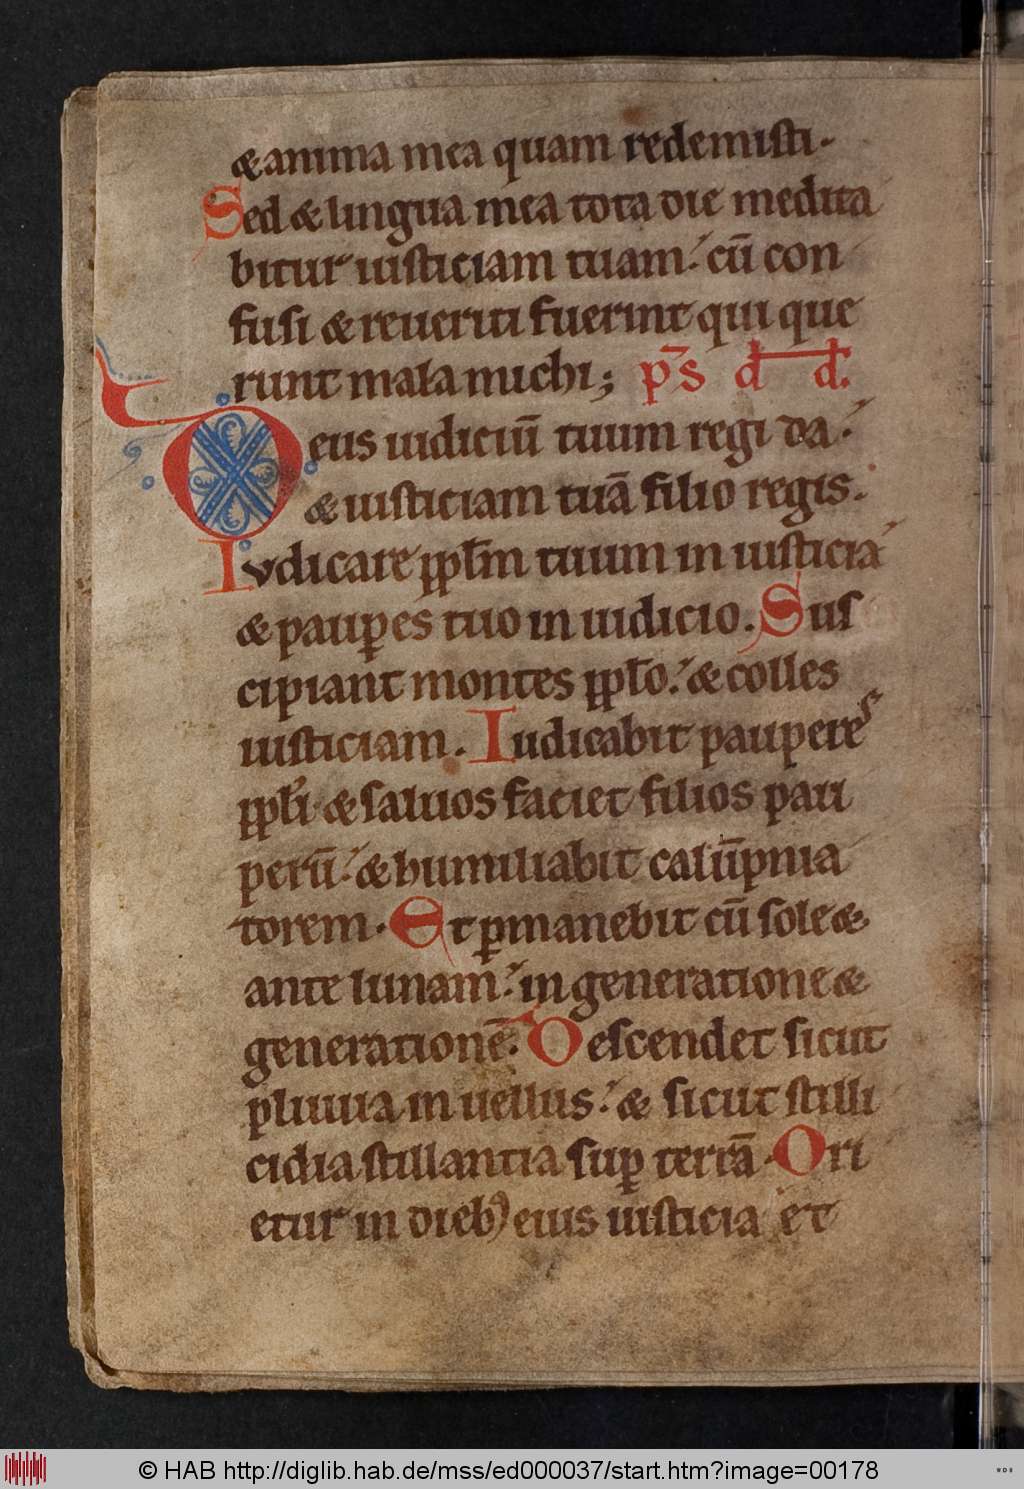 & anima mea quam redemisti.
Sed & lingua mea tota die medita
bitur iusticiam tuam: cū con
fusi & reueriti fuerint qui que
runt mala michi; p̄s d̄ d̄.
Deus iudiciū tuum regi da:
& iusticiam tuā filio regis.
Iudicare ppl̄m tuum in iusticia
& paup̱es tuo in iudicio. Sus
cipiant montes ppl̄o: & colles
iusticiam. Iudicabit pauperes
ppl̄i & saluos faciet filios pau
perū: & humiliabit calūpnia
torem. Et p̱manebit cū sole &
ante lunam: in generatione &
generationē. Descendet sicut
pluuia in uellus: & sicut stilli
cidia stillantia sup̱ terrā. Ori
etur in dieb; eius iusticia et
© HAB http://diglib.hab.de/mss/ed000037/start.htm?image=00178